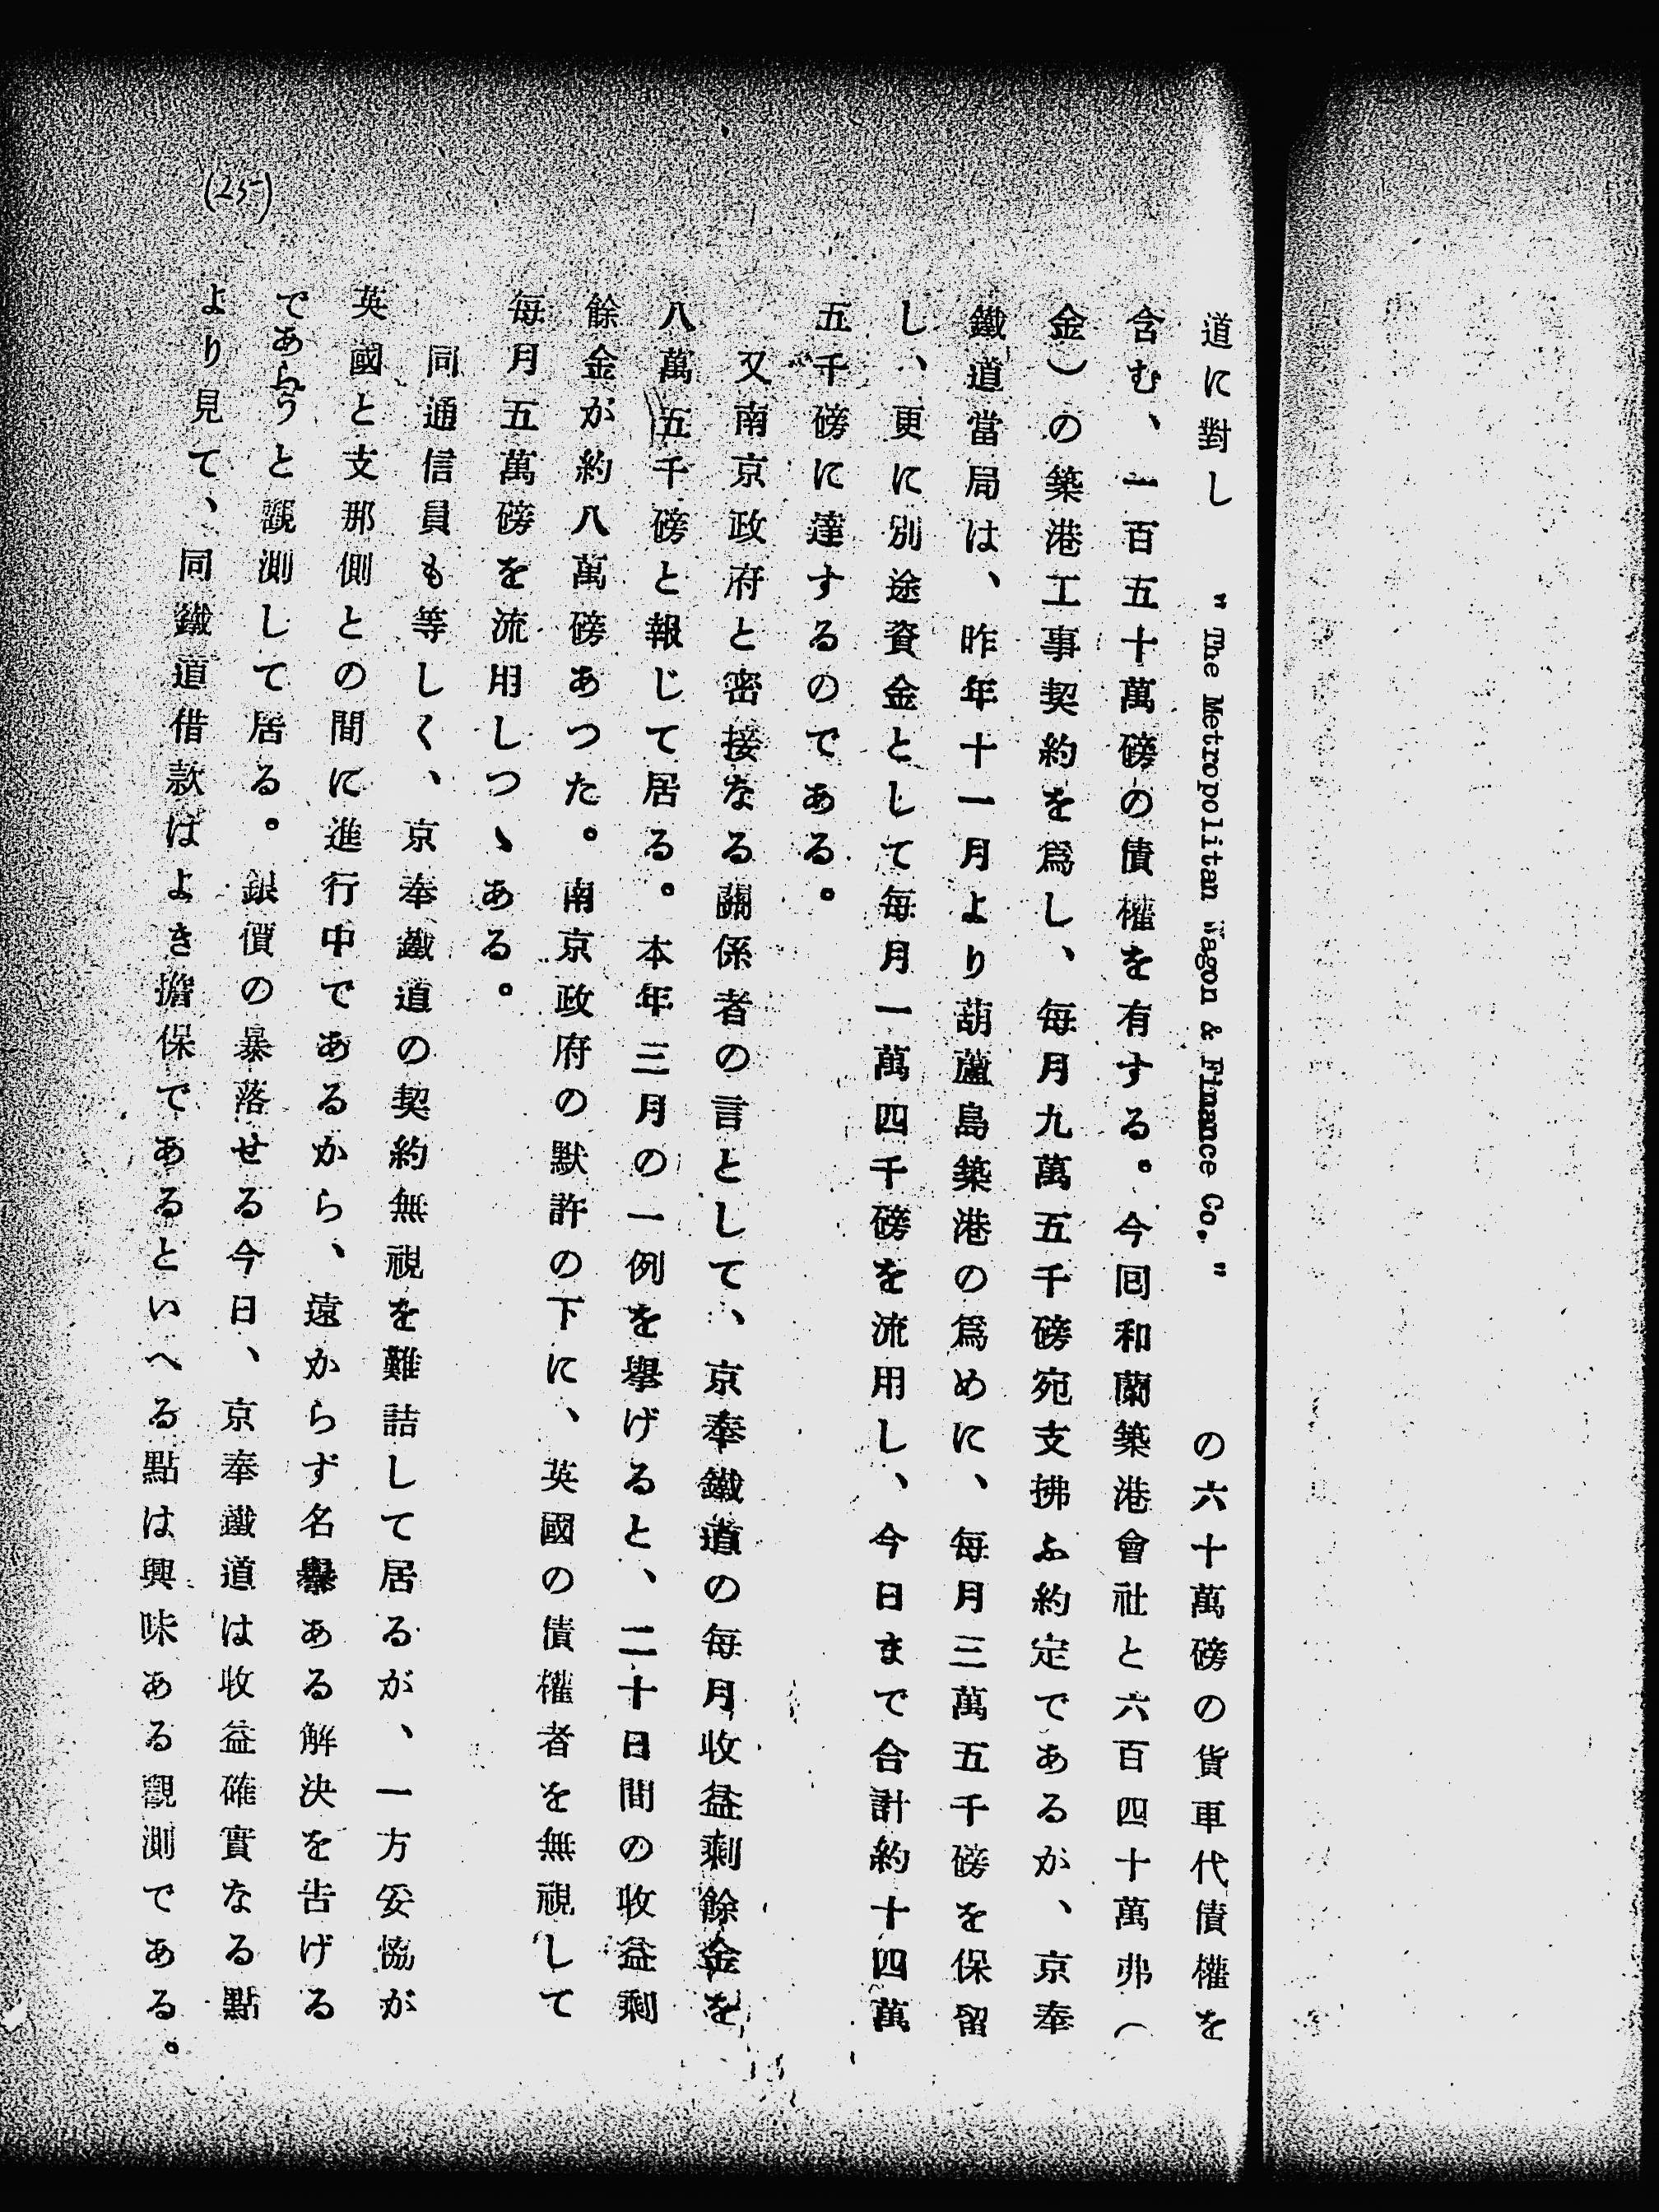 道に對し "The Metropolitan Wagon & Finance Co." の六十萬磅の貨車代債權を
含む、一百五十萬磅の債權を有する。今囘和蘭築港會社と六百四十萬弗（
金）の築港工事契約を爲し、毎月九萬五千磅宛支拂ふ約定であるが、京奉
鐵道當局は、昨年十一月より葫蘆島築港の爲めに、毎月三萬五千磅を保留
し、更に別途資金として毎月一萬四千磅を流用し、今日まで合計約十四萬
五千磅に達するのである。
又南京政府と密接なる關係者の言として、京奉鐵道の毎月收益剩餘金を
八萬五千磅と報じて居る。本年三月の一例を擧げると、二十日間の收益剩
餘金が約八萬磅あつた。南京政府の默許の下に、英國の債權者を無視して
毎月五萬磅を流用しつゝある。
同通信員も等しく、京奉鐵道の契約無視を難詰して居るが、一方妥協が
英國と支那側との間に進行中であるから、遠からず名譽ある解決を告げる
であらうと觀測して居る。銀價の暴落せる今日、京奉鐵道は收益確實なる點
より見て、同鐵道借款はよき擔保であるといへる點は興味ある觀測である。
(25)